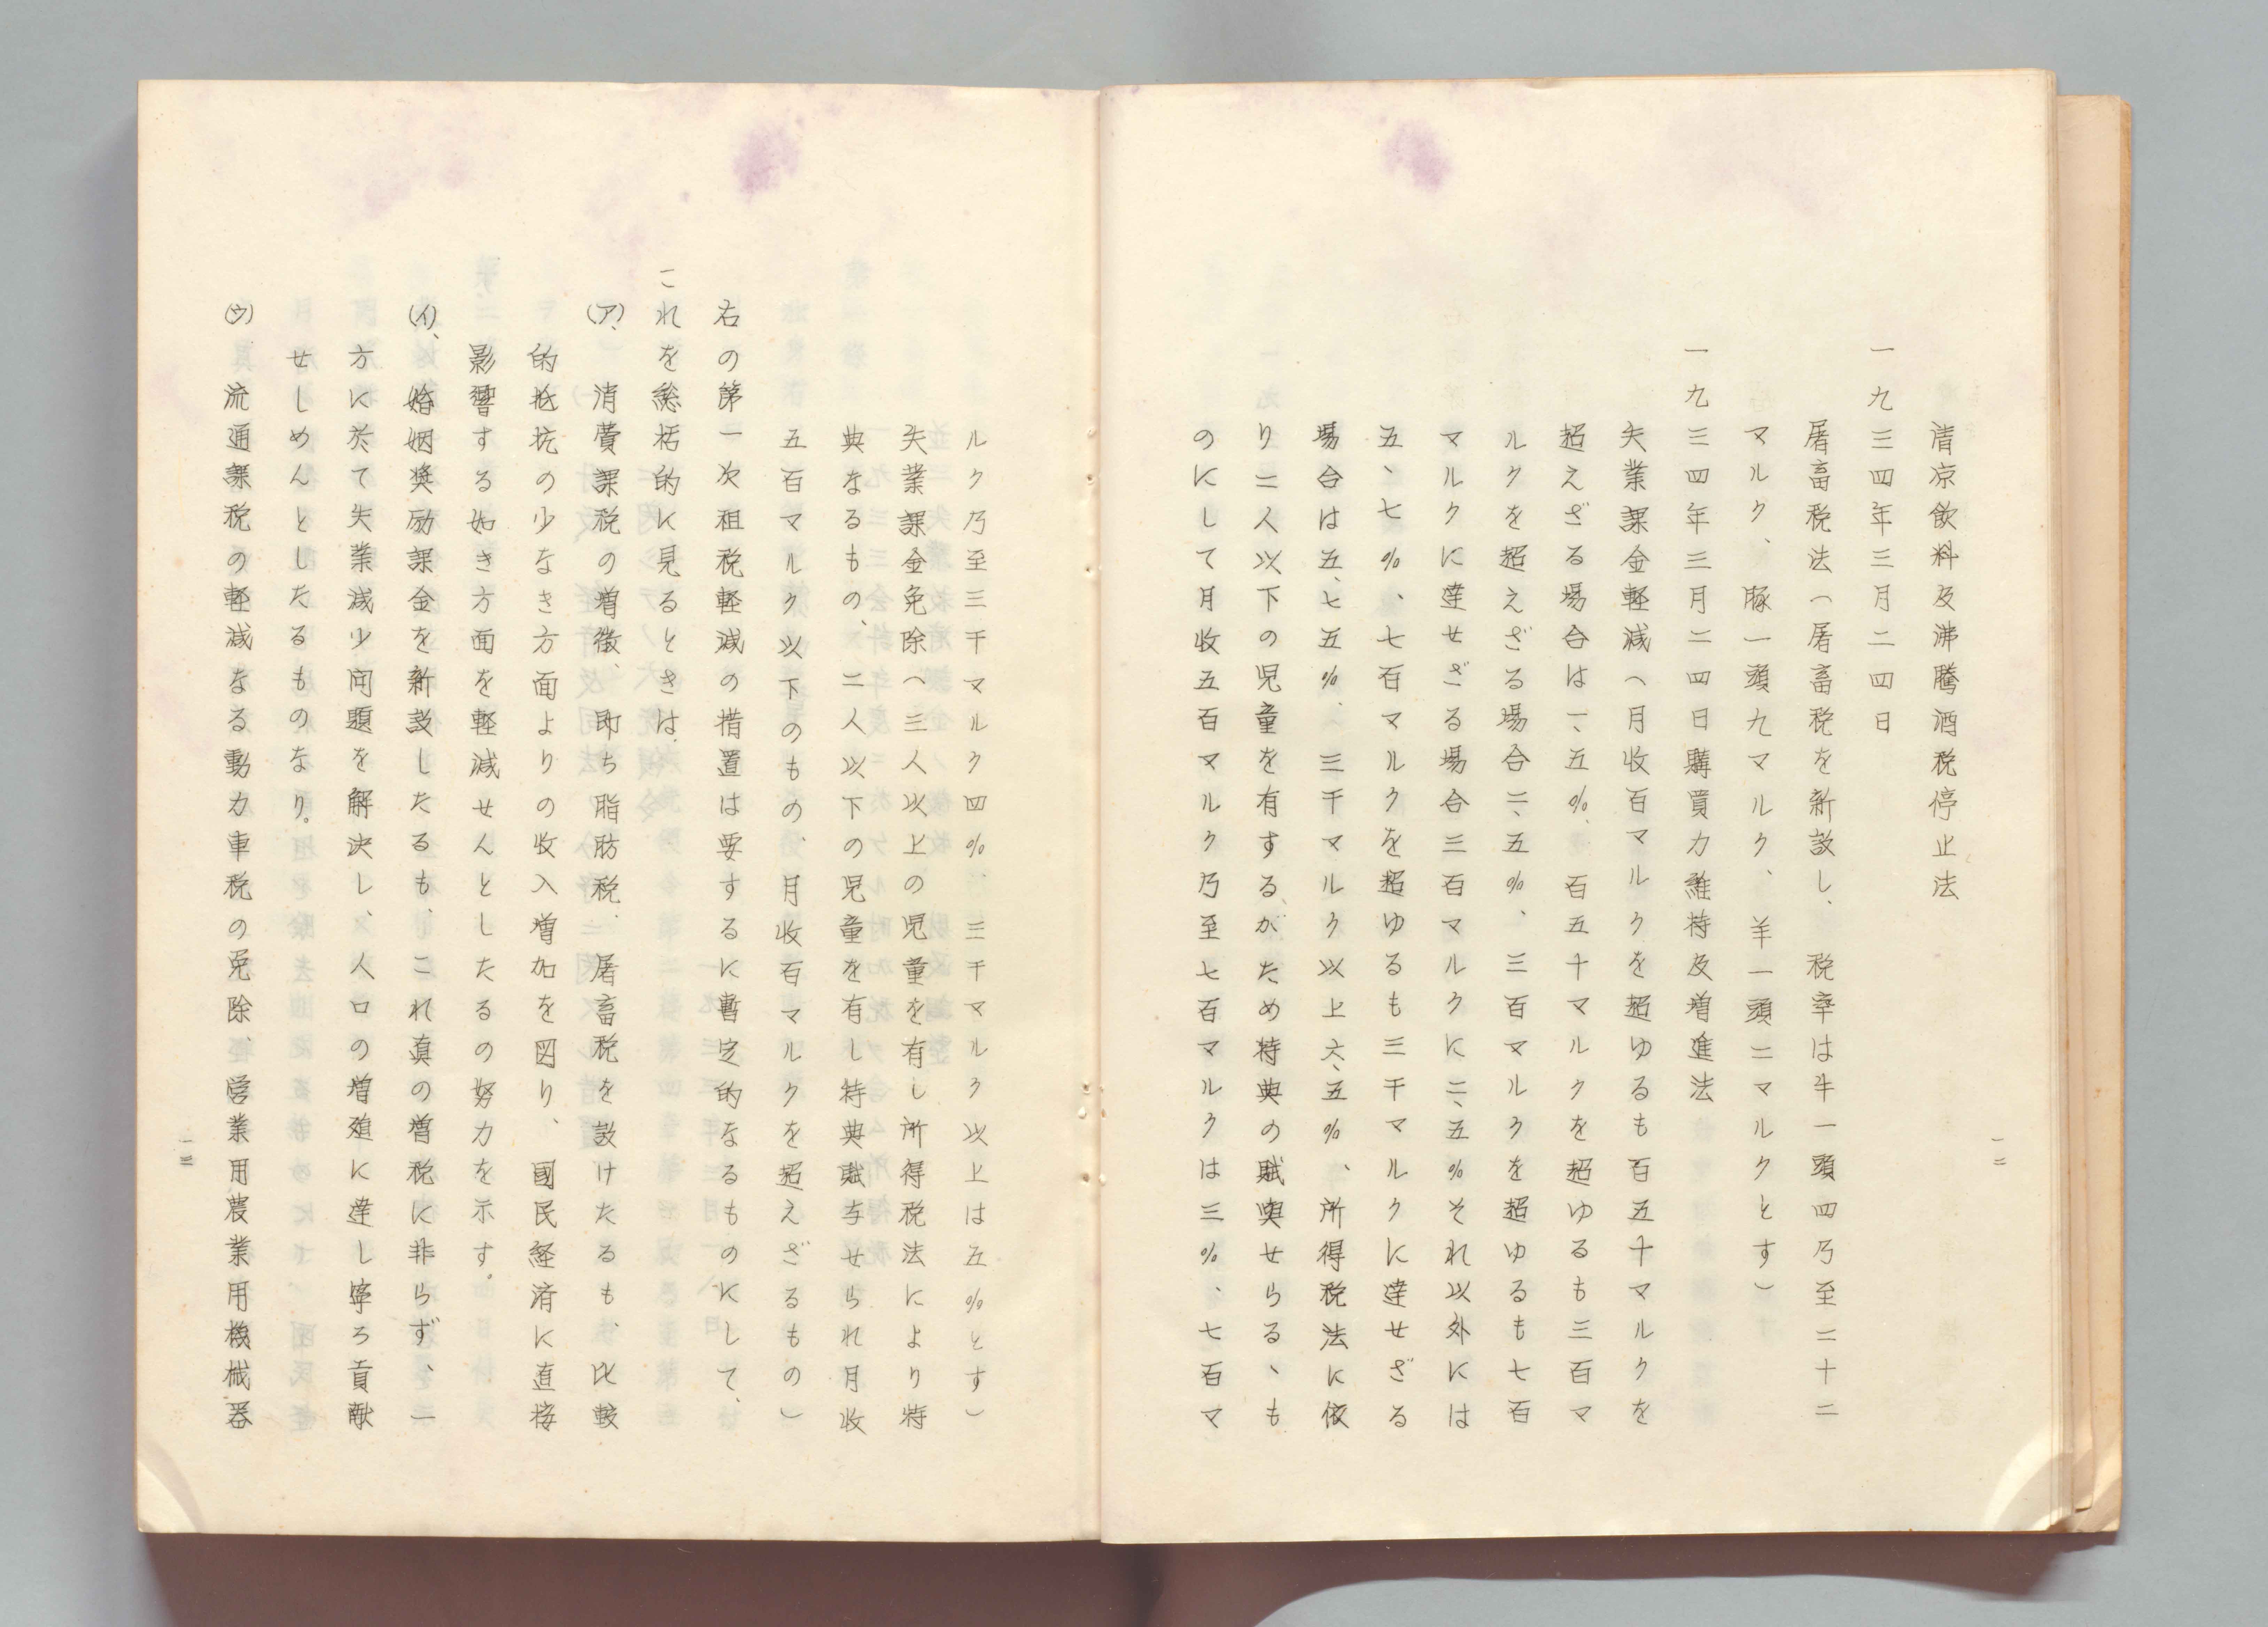 清凉飲料及沸騰酒税停止法
一九三四年三月二四日
屠畜税法（屠畜税を新設し、税率は牛一頭四乃至二十二
マルク、豚一頭九マルク、羊一頭二マルクとす）
一九三四年三月二四日購買力維持及増進法
失業課金軽減（月收百マルクを超ゆるも百五十マルクを
超えざる場合は一、五％、百五十マルクを超ゆるも三百マ
ルクを超えざる場合二、五％、三百マルクを超ゆるも七百
マルクに達せざる場合三百マルクに二、五％それ以外には
五、七％、七百マルクを超ゆるも三千マルクに達せざる
場合は五、七五％、三千マルク以上六、五％、所得税法に依
り二人以下の児童を有するがため特典の賦與せらるゝも
のにして月收五百マルク乃至七百マルクは三％、七百マ
一二
ルク乃至三千マルク四％、三千マルク以上は五％とす）
失業課金免除（三人以上の児童を有し所得税法により特
典なるもの、二人以下の児童を有し特典賦与せられ月收
五百マルク以下のもの、月收百マルクを超えざるもの）
右の第一次租税軽減の措置は要するに暫定的なるものにして、
これを総括的に見るときは、
(ア)、消費課税の増徴、即ち脂肪税、屠畜税を設けたるも、比較
的抵抗の少なき方面よりの收入増加を図り、國民経済に直接
影響する如き方面を軽減せんとしたるの努力を示す。
(イ)、婚姻奨励課金を新設したるも、これ真の増税に非らず、一
方に於て失業減少问題を解決し、人口の増殖に達し寧ろ貢献
せしめんとしたるものなり。
(ウ)、流通課税の軽減なる動力車税の免除、営業用農業用機械器
一三